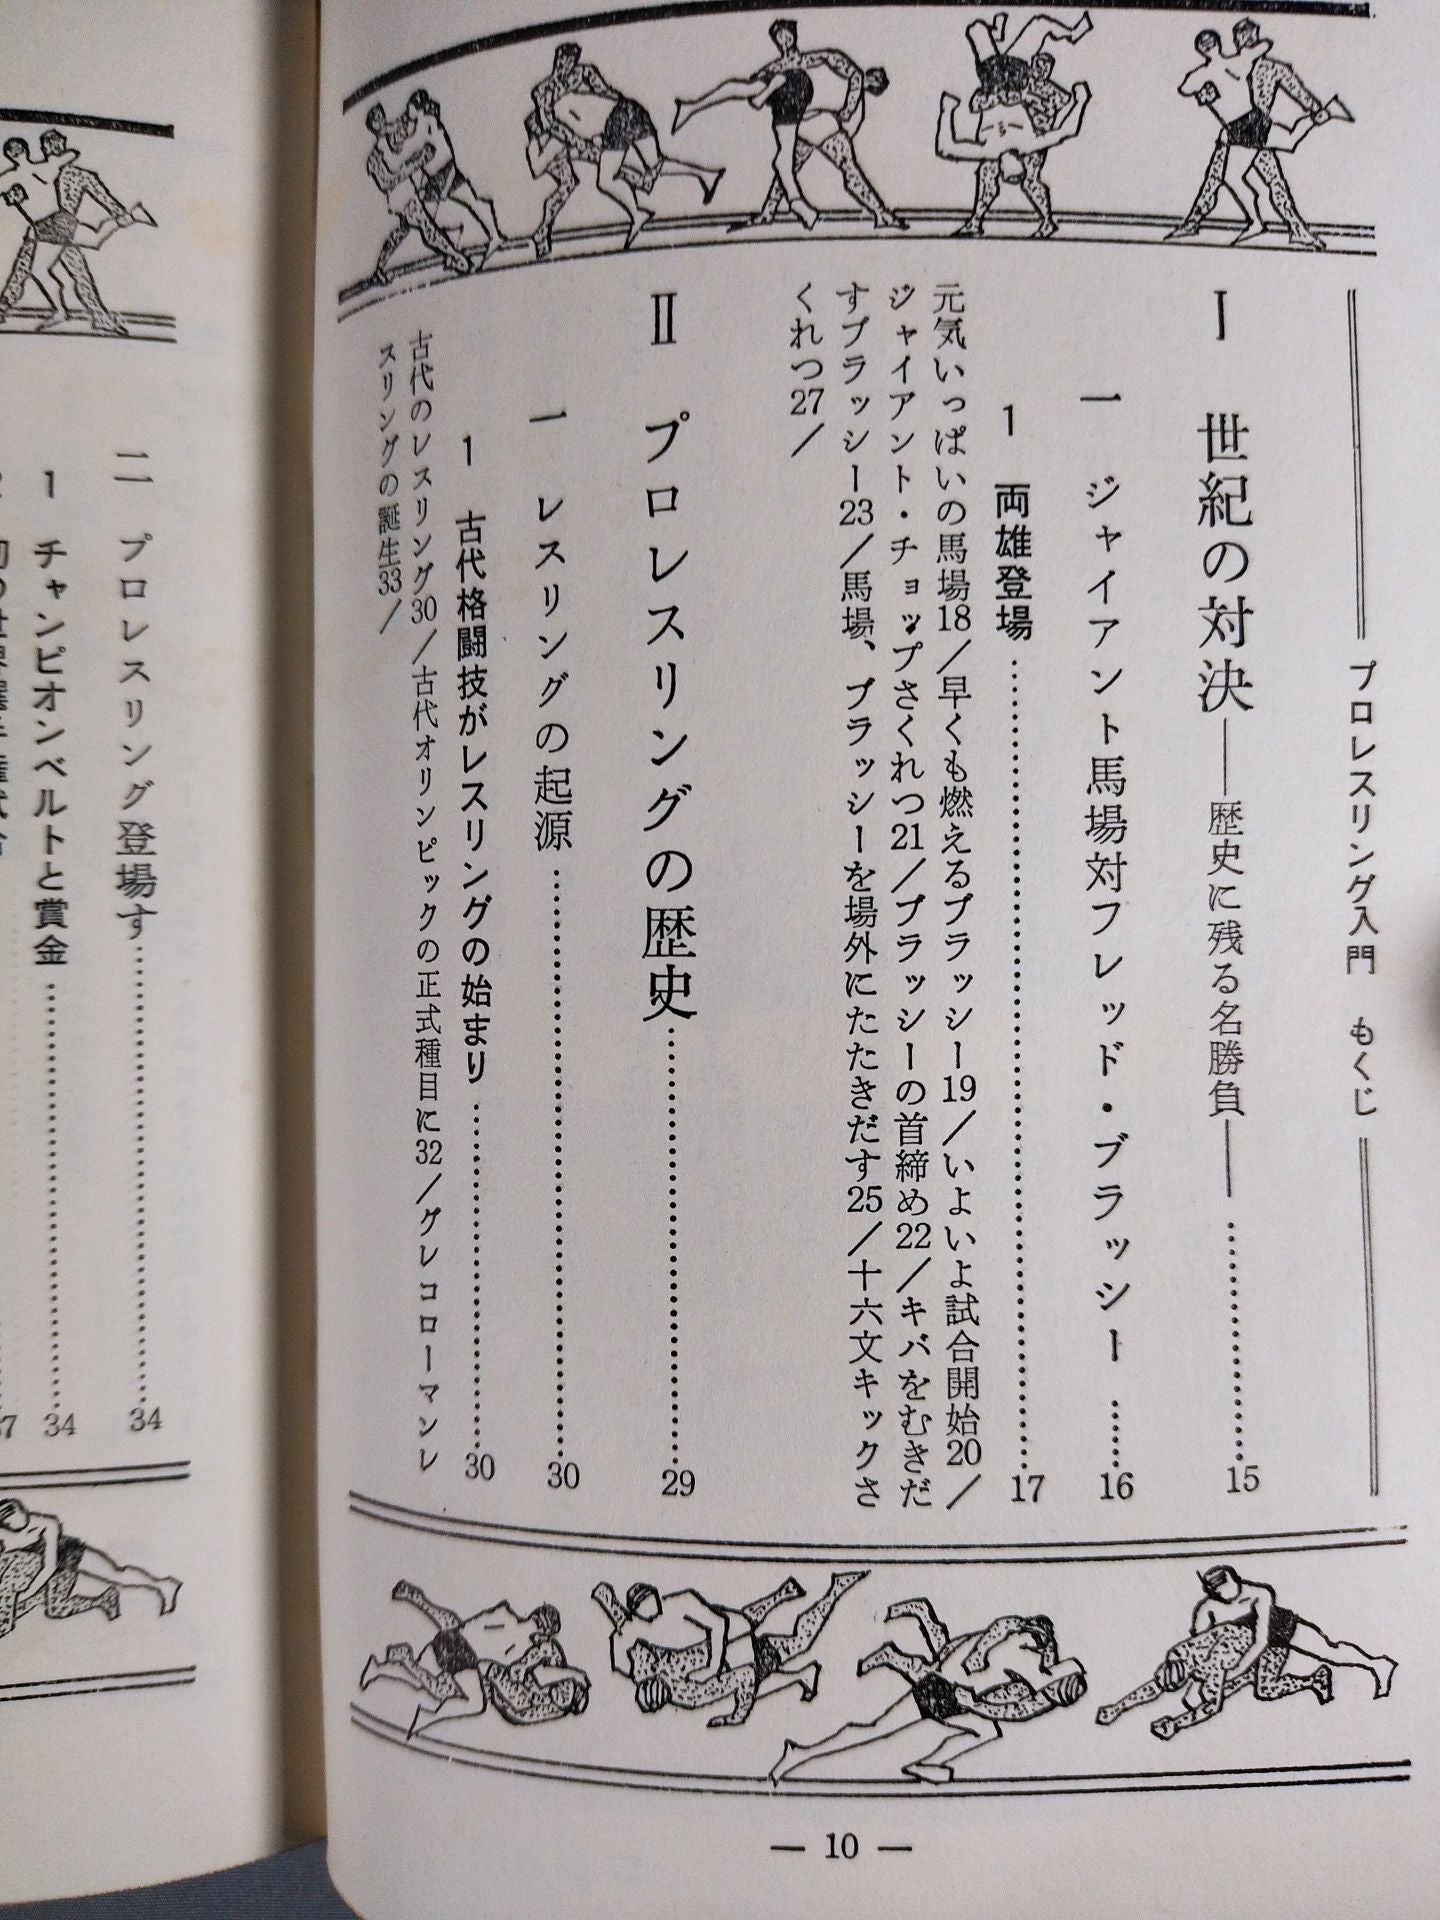 プロレスリング入門　もくじ
Ⅰ　世紀の対決――歴史に残る名勝負――……………15
一　ジャイアント馬場対フレッド・ブラッシー……16
1　両雄登場……………………………17
元気いっぱいの馬場18／早くも燃えるブラッシー19／いよいよ試合開始20／
ジャイアント・チョップさくれつ21／ブラッシーの首締め22／キバをむきだ
すブラッシー23／馬場、ブラッシーを場外にたたきだす25／十六文キックさ
くれつ27／
Ⅱ　プロレスリングの歴史……………………29
一　レスリングの起源……………………………30
1　古代格闘技がレスリングの始まり…………………30
古代のレスリング30／古代オリンピックの正式種目に32／グレコローマンレ
スリングの誕生33／
― 10 ―
二　プロレスリング登場す……………………34
1　チャンピオンベルトと賞金…………………34